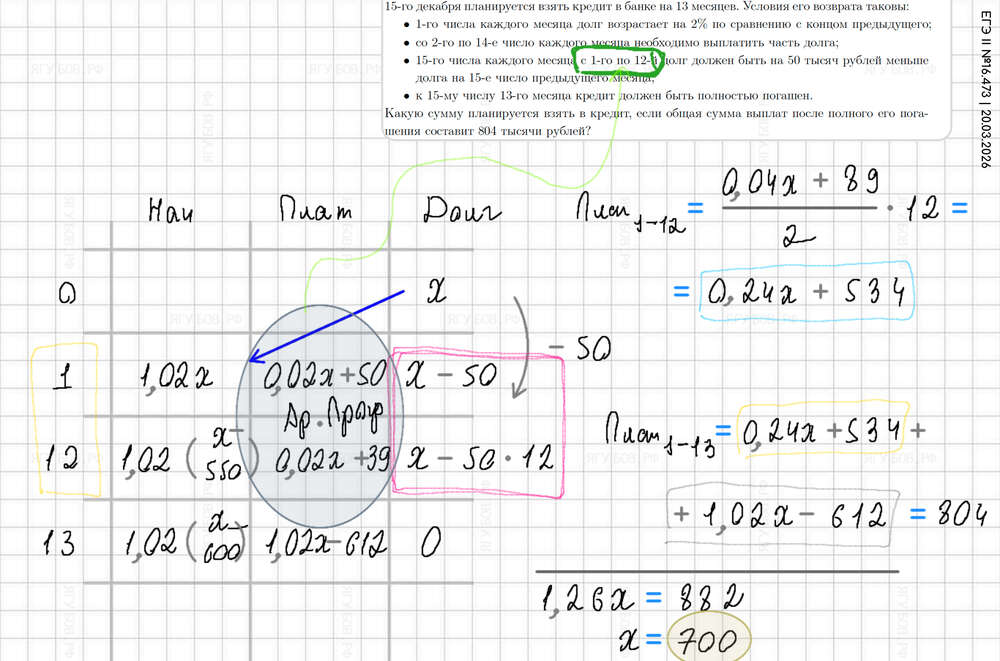 15-го декабря планируется взять кредит в банке на 13 месяцев. Условия его возврата таковы:
• 1-го числа каждого месяца долг возрастает на 2% по сравнению с концом предыдущего;
• со 2-го по 14-е число каждого месяца необходимо выплатить часть долга;
• 15-го числа каждого месяца с 1-го по 12-й долг должен быть на 50 тысяч рублей меньше
долга на 15-е число предыдущего месяца;
• к 15-му числу 13-го месяца кредит должен быть полностью погашен.
Какую сумму планируется взять в кредит, если общая сумма выплат после полного его пога-
шения составит 804 тысячи рублей?
ЕГЭ II №16.473 | 20.03.2026
Нач Плат Долг
0 x
- 50
1 1,02x 0,02x+50 x - 50
Ар. Прогр
12 1,02 (x-550) 0,02x+39 x - 50·12
13 1,02 (x-600) 1,02x-612 0
Плат 1-12 = (0,04x + 89)/2 · 12 =
= 0,24x + 534
Плат 1-13 = 0,24x+534+
+ 1,02x - 612 = 804
1,26x = 882
x = 700
ЯГУБОВ.РФ